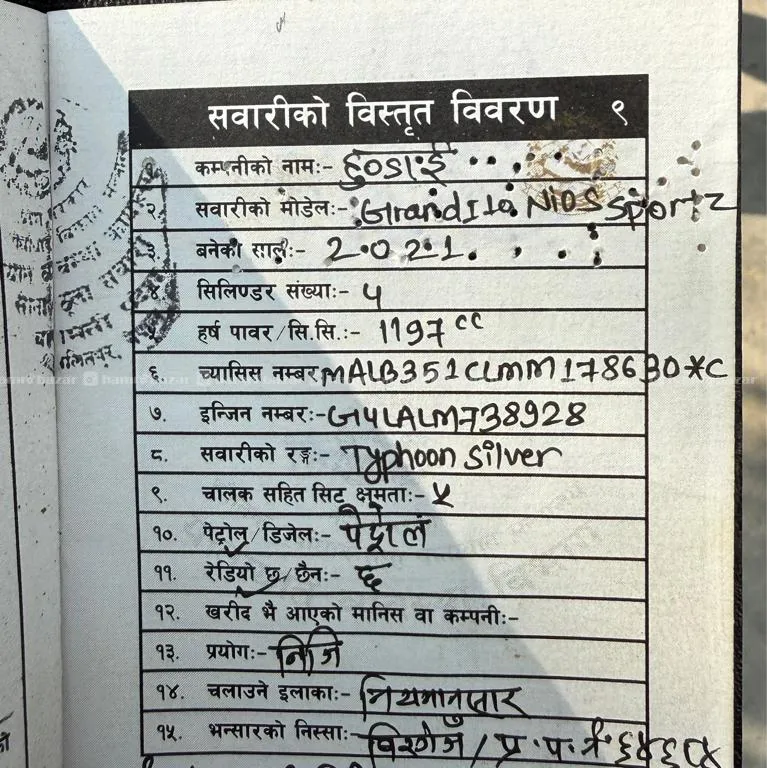 सवारीको विस्तृत विवरण ९
१. कम्पनीको नाम:- हुण्डाई
२. सवारीको मोडेल:- Grand I10 NiOS Sportz
३. बनेको साल:- 2021.
४. सिलिण्डर संख्या:- ५
५. हर्ष पावर/सि.सि.:- 1197 cc
६. च्यासिस नम्बर MALB351CLMM178630*C
७. इन्जिन नम्बर:- G4LALM738928
८. सवारीको रङ्ग:- Typhoon Silver
९. चालक सहित सिट क्षमता:- ५
१०. पेट्रोल/डिजेल:- पेट्रोल
११. रेडियो छ/छैन:- छ
१२. खरीद भै आएको मानिस वा कम्पनी:-
१३. प्रयोग:- निजि
१४. चलाउने इलाका:- नियमानुसार
१५. भन्सारको निस्सा:- विरगंज / प्र.प.नं.
hamrobazar